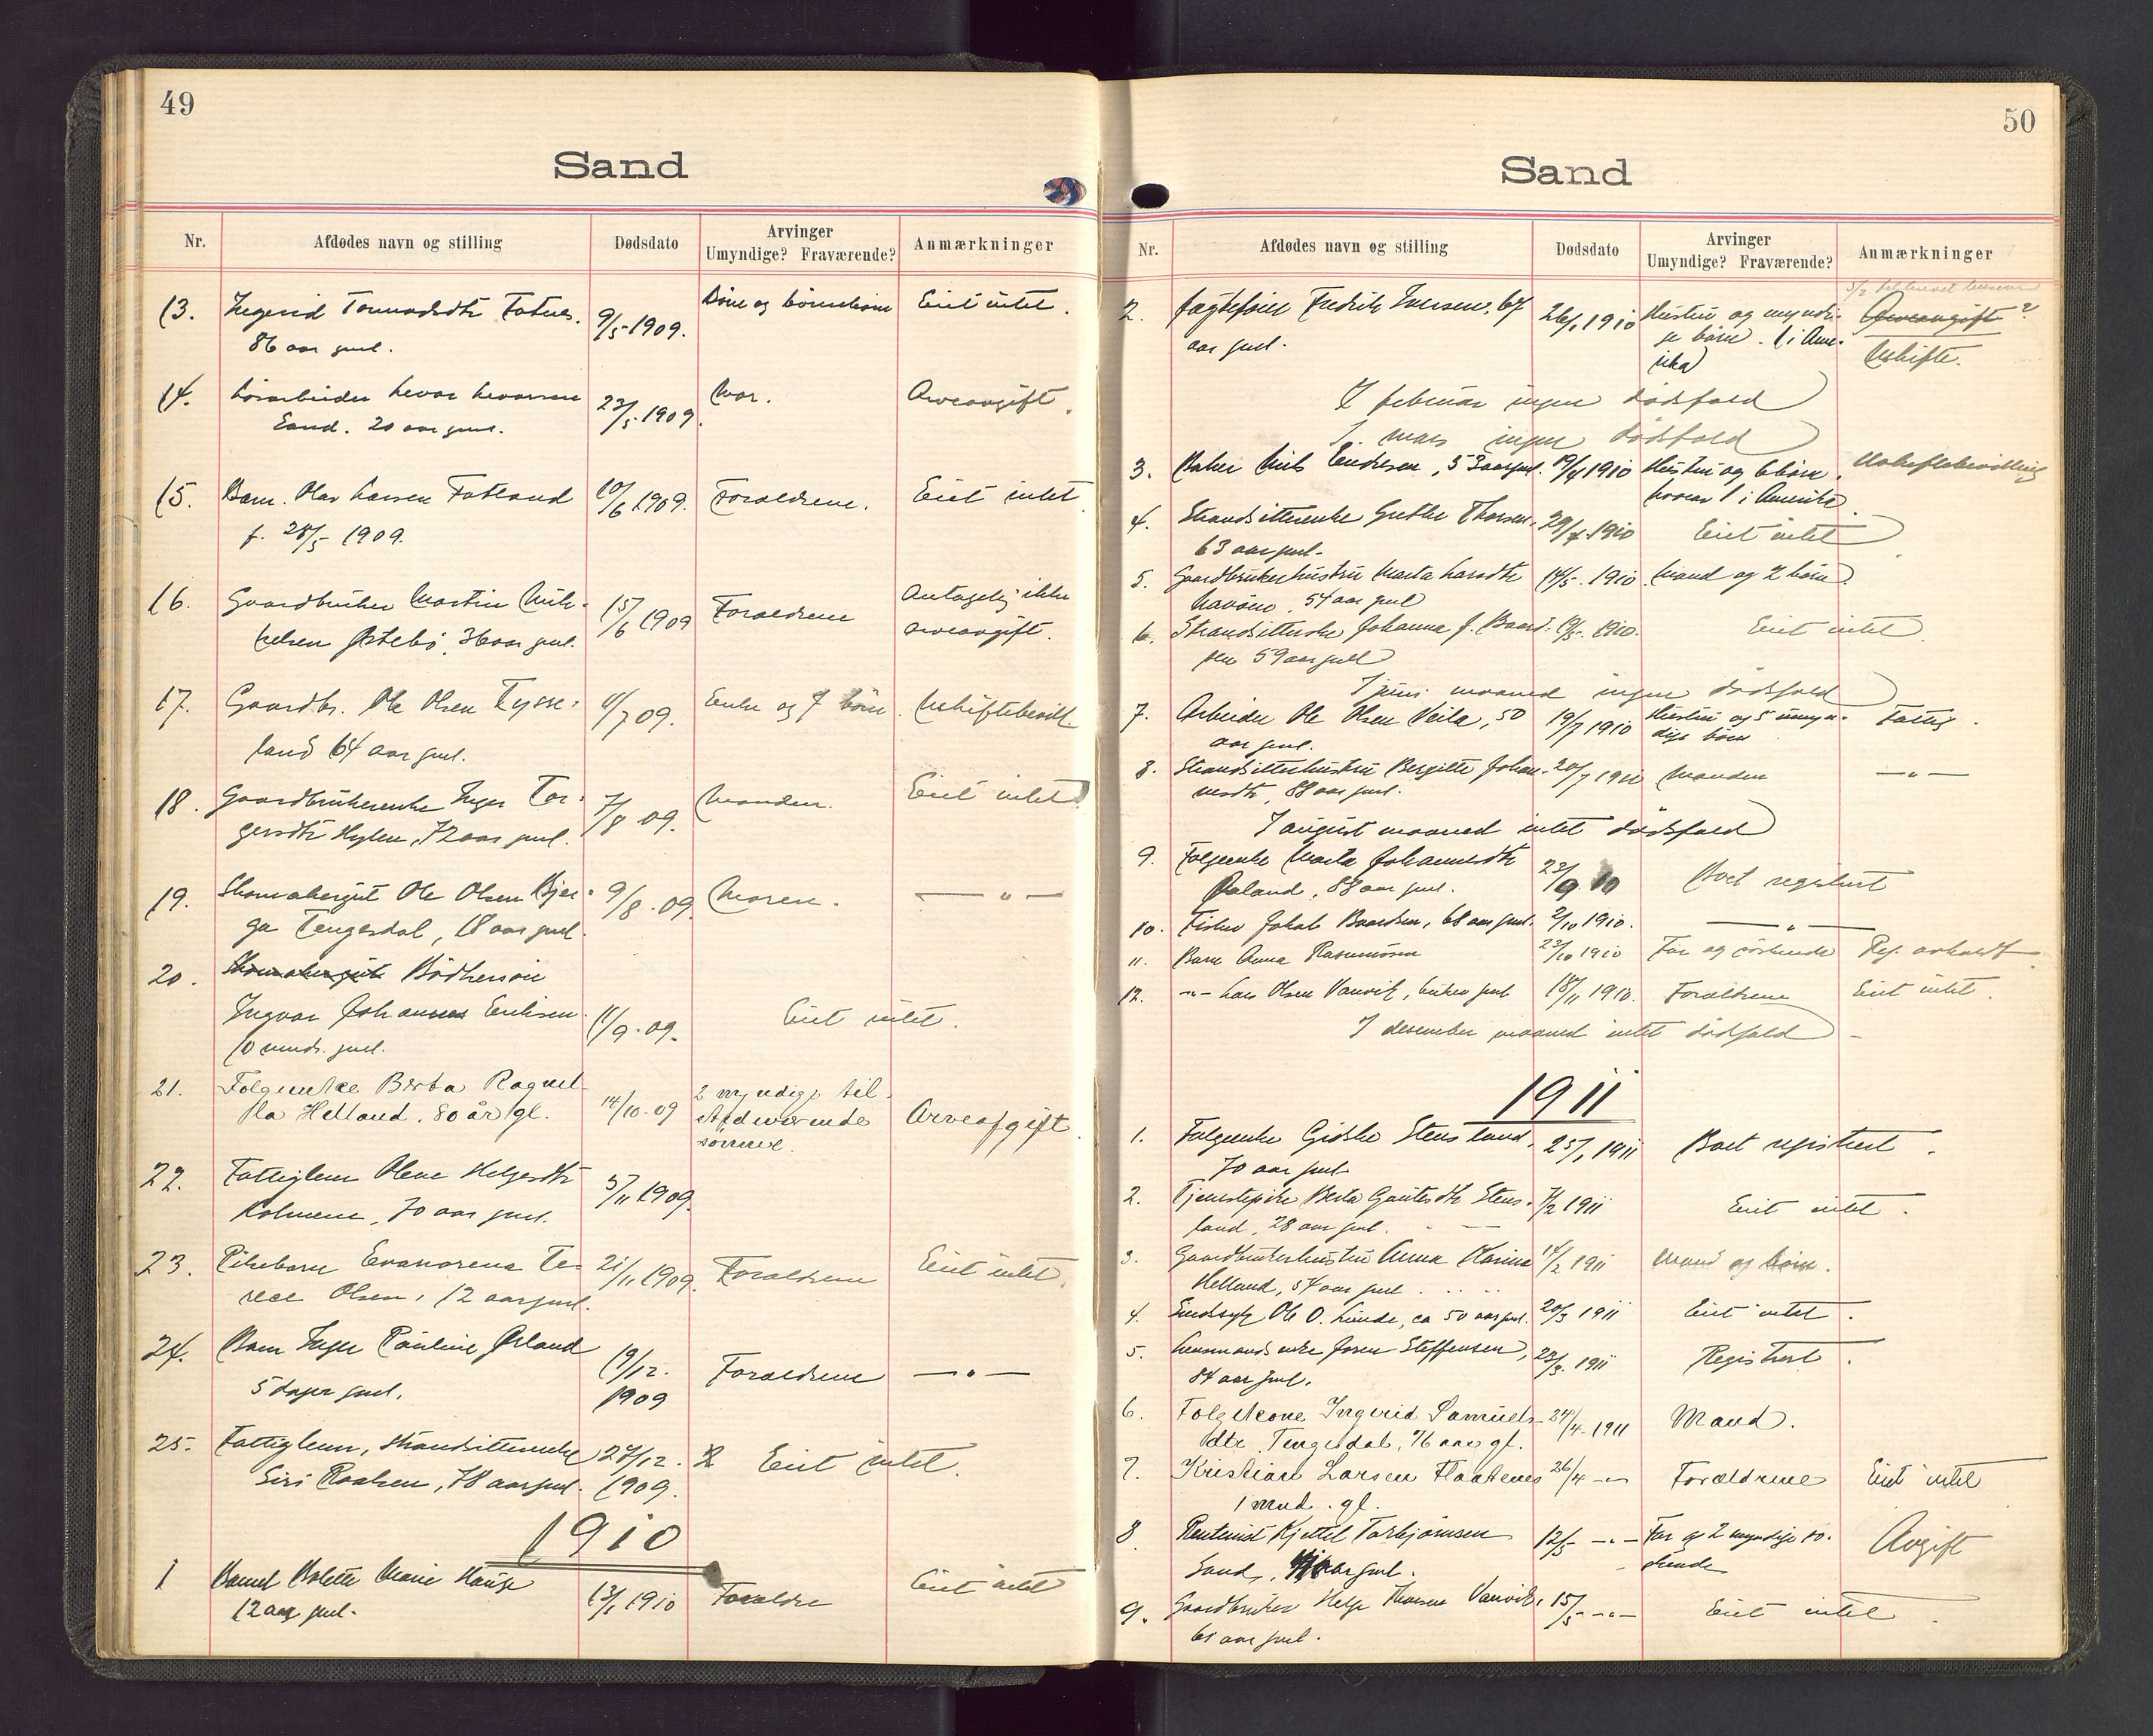 49
Sand
Nr.
Afdødes navn og stilling
Dødsdato
Arvinger
Umyndige? Fraværende?
Anmærkninger
13. Ingerid 86 aar gml. 9/5 1909. Børn og børnebørn Eiet intet.
14. Sand. 20 aar gml. 23/5 1909. Mor. Arveavgift.
15. Barn. Olav Larsen Fatland
f. 28/5 1909. 10/6 1909. Forældrene. Eiet intet
16. Gaardbruker Martin Mik-
kelsen Østebø, 36 aar gml. 15/6 1909 Forældrene Antagelig ikke
arveavgift.
17. Gaardbr. Ole Olsen Tysse-
land 64 aar gml. 11/7 09. Enke og 7 børn. Uskiftebevill.
18. Gaardbrukerenke Inger Tor-
gersdtr Hylen, 72 aar gml. 7/8 09. Manden. Eiet intet
19. Skomakergut Ole Olsen Bjer-
ga Tengesdal, 18 aar gml. 9/8 . 09. Moren. — „ —
20. Skomakergut Bødkersøn
Ingvar Johannes Eriksen
10 mndr. gml. 11/9 . 09. Eiet intet.
21. Folgeenke Berta Ragnel-
la Helland. 80 år gl. 14/10-09 2 myndige til-
stedeværende
sønner. Arveafgift
22. Fattiglem Olene Helgesdtr
Kolmene, 70 aar gml. 5/11 1909.
23. Pikebarn Evanorena Te-
rese Olsen, 12 aar gml. 21/11 1909. Forældrene Eiet intet.
24. Barn Inger Pauline Ørland
5 dager gml. 19/12. 1909 Forældrene — „ —
25. Fattiglem, strandsitterenke
Siri 78 aar gml. 27/12. 1909. Eiet intet.
1910
1 Barnet Bolette Marie Hauge
12 aar gml. 13/1 1910 Forældre Eiet intet
50
Sand
Nr.
Afdødes navn og stilling
Dødsdato
Arvinger
Umyndige? Fraværende?
Anmærkninger
2. Fredrik Iversen, 67
aar gml. 26/1 1910 Hustru og myndi-
ge børn. 1 i Ame-
rika Arveavgift ?
Uskifte.
I februar ingen dødsfald
I mars ingen dødsfald
3. Baker Nils Endresen, 53 aar gml. 19/4 1910 Hustru og 6 børn,
hvorav 1 i Amerika. Uskiftebevilling
4. Strandsitterenke Grethe Thorsen,
63 aar gml. 29/4 1910 Eiet intet
5. Gaardbrukerhustru Marta Larsdtr
54 aar gml 14/5 . 1910 Mand og 2 børn.
6. Strandsitterske Johanna J. Baard-
sen 59 aar gml 19/5 . 1910. Eiet intet
I juni maaned ingen dødsfald
7. Arbeider Ole Olsen Veila, 50
aar gml. 19/7 1910 Hustru og 5 umyn-
dige børn Fattig.
8. Strandsitterhustru Bergitte Johan-
nesdtr, 88 aar gml. 20/7 1910 Manden — „ —
I august maaned intet dødsfald
9. Folgeenke Marta Johannesdtr
88 aar gml. 23/9 10 Boet registrert
10. Fisker Jakob Baardsen, 68 aar gml. 2/10 1910. — „ —
11. Barn Anna Rasmussen 23/10 1910 Far og søskende Reg. avholdt
12. -„- Lars Olsen Vanvik, 18/11 1910. Forældrene Eiet intet.
I desember maaned intet dødsfald
1911
1. Folgeenke Gidske Stensland,
70 aar gml. 25/1 1911 Boet registrert.
2. Tjenestepike Berta Gautesdtr Stens-
land, 28 aar gml. 7/2 1911 Eiet intet.
3. Gaardbrukerhustru Anna Karina
Helland, 54 aar gml. 14/2 1911 Mand og børn.
4. Sindssyk Ole O. Lunde, ca 50 aar gml. 20/3 1911 Eiet intet.
5. Lensmandsenke Steffensen,
84 aar gml. 23/3. 1911 Registrert.
6. Folgekone Ingerid Samuels-
dtr. Tengesdal, 76 aar gl. 24/4-1911 Mand.
7. Kristian Larsen Flaatenes
1 mnd. gl. 26/4 -„- Forældrene Eiet intet
8. Rentenist Kjetil Torbjørnsen
Sand, aar gml. 12/5 -„- Far og 2 myndige sø-
skende Avgift
9. Gaardbruker Helge Vanvik,
61 aar gml. 15/5 -„- Eiet intet